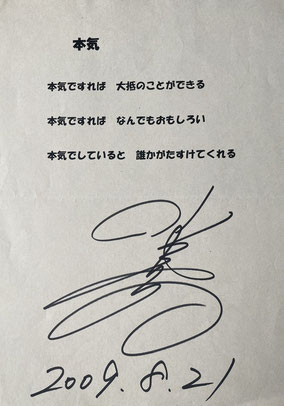 本気
本気ですれば 大抵のことができる
本気ですれば なんでもおもしろい
本気でしていると 誰かがたすけてくれる
2009.8.21